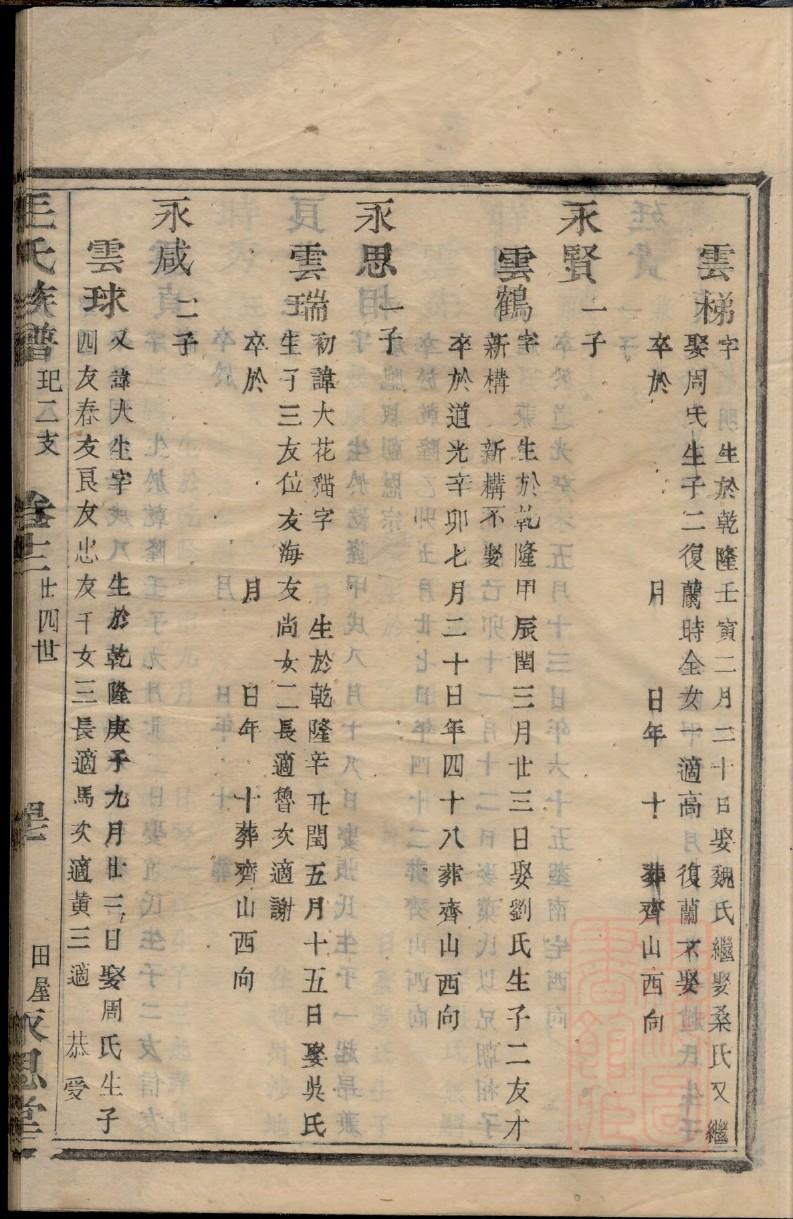 雲梯字 生於乾隆壬寅二月二十日娶魏氏繼娶桑氏又繼
娶周氏生子二復蘭時全女一適高 復蘭不娶
卒於 月 日年 十 葬齊山西向
永賢 一子
雲鶴字 生於乾隆甲辰閏三月廿三日娶劉氏生子二友才
新構 新構不娶
卒於道光辛卯七月二十日年四十八葬齊山西向
永思 一子
雲瑞初諱大花貓字 生於乾隆辛丑閏五月十五日娶吳氏
生子三友位友海友尚女二長適魯次適謝
卒於 月 日年 十葬齊山西向
永咸 二子
雲球又諱大生字 生於乾隆庚子九月廿二日娶周氏生子
四友春友良友忠友千女三長適馬次適黃三適 恭受
王氏族譜 玘二支 卷十二 廿四世 田屋 永思堂